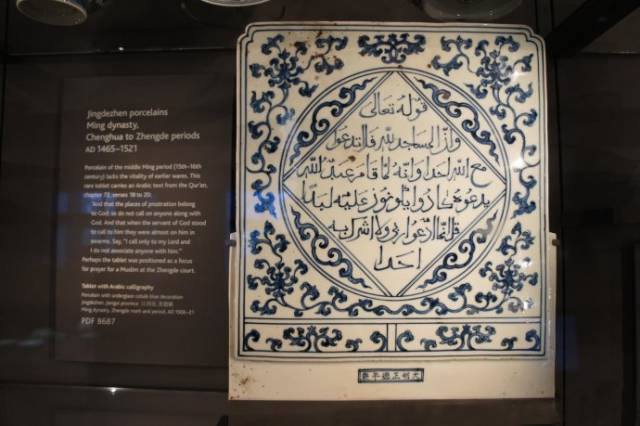 Jingdezhen porcelains
Ming dynasty,
Chenghua to Zhengde periods
AD 1465–1521
Porcelain of the middle Ming period (15th–16th
century) lacks the vitality of earlier wares. This
rare tablet carries an Arabic text from the Qur'an,
chapter 72, verses 18 to 20:
'And that the places of prostration belong
to God so do not call on anyone along with
God. And that when the servant of God stood
to call to him they were almost on him in
swarms. Say, "I call only to my Lord and
I do not associate anyone with him."'
Perhaps the tablet was positioned as a focus
for prayer for a Muslim at the Zhengde court.
Tablet with Arabic calligraphy
Porcelain with underglaze cobalt-blue decoration
Jingdezhen, Jiangxi province
Ming dynasty, Zhengde mark and period, AD 1506–21
PDF 8687
قوله تعالى
وان المساجد لله فلا تدعوا
مع الله احدا وانه لما قام عبد الله
يدعوه كادوا يكونون عليه لبدا
قل انما ادعوا ربي ولا اشرك به
احدا
大明正德年製